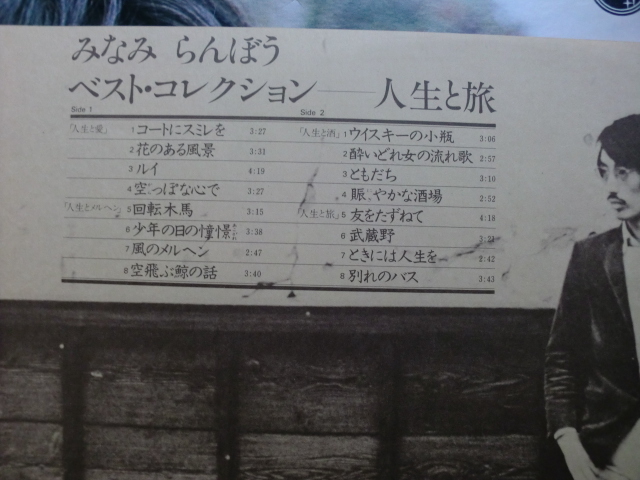 みなみ らんぼう
ベスト・コレクション──人生と旅
Side 1
「人生と愛」 1 コートにスミレを 3:27
2 花のある風景 3:31
3 ルイ 4:19
4 空っぽな心で 3:27
「人生とメルヘン」 5 回転木馬 3:15
6 少年の日の憧憬 3:38
7 風のメルヘン 2:47
8 空飛ぶ鯨の話 3:40
Side 2
「人生と酒」 1 ウイスキーの小瓶 3:06
2 酔いどれ女の流れ歌 2:57
3 ともだち 3:10
4 賑やかな酒場 2:52
「人生と旅」 5 友をたずねて 4:18
6 武蔵野
7 ときには人生を 2:42
8 別れのバス 3:43